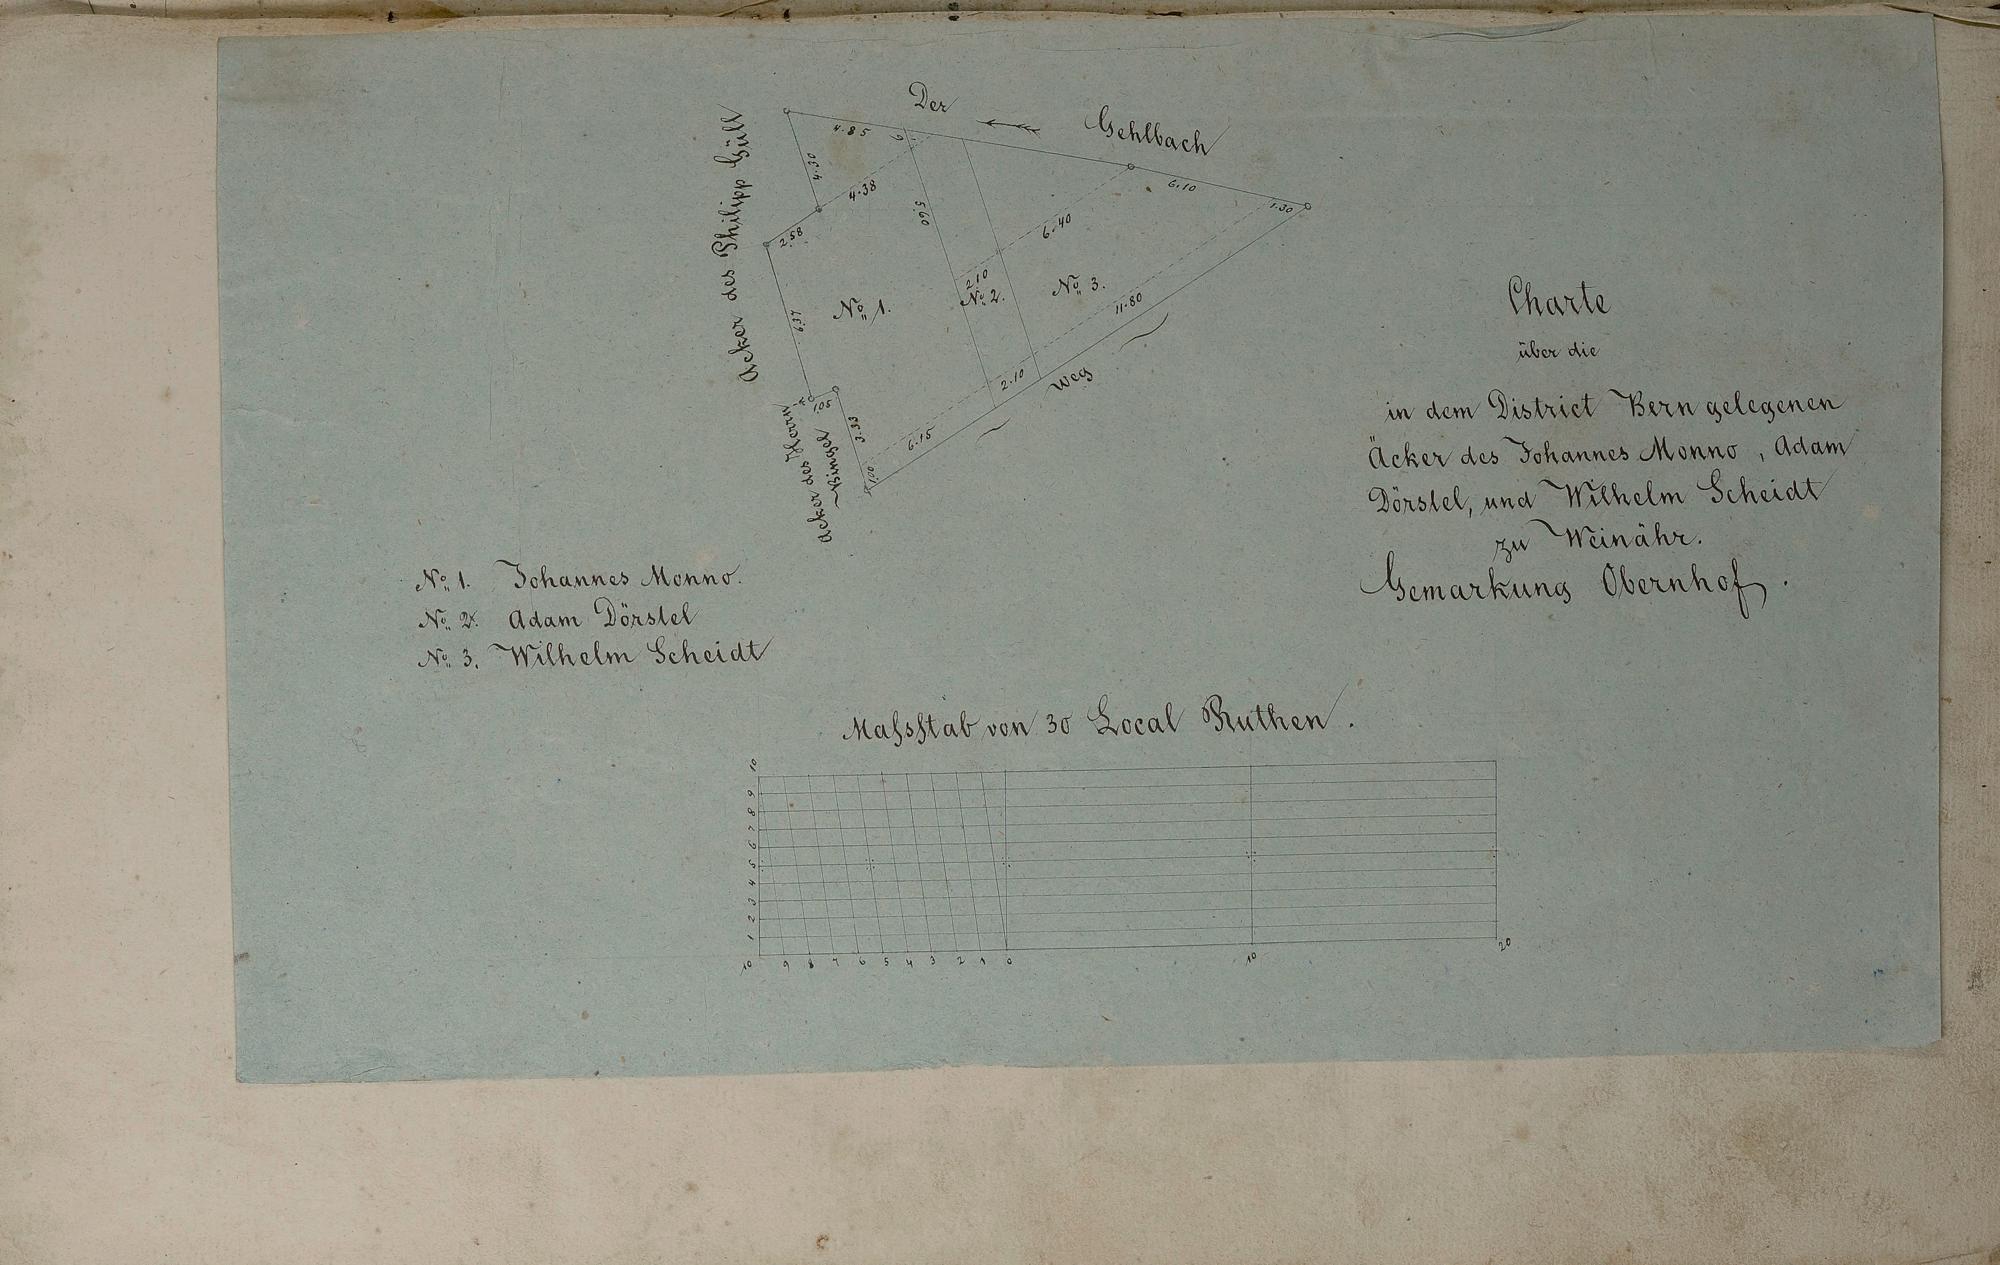 Der Gehlbach
Acker des Philipp Güll
4.85
6
4.30
4.38
5.60
6.10
1.30
6.40
2.58
2.10
No 1.
No 2.
No 3.
6.37
11.80
2.10
Weg
1.05
3.33
6.15
1.00
Acker des Herrn
Bingel
Charte
über die
in dem District Bern gelegenen
Äcker des Johannes Monno, Adam
Dörstel, und Wilhelm Scheidt
zu Weinähr.
Gemarkung Obernhof.
No 1. Johannes Monno.
No 2. Adam Dörstel
No 3. Wilhelm Scheidt
Maſsſtab von 30 Local Ruthen.
10
9
8
7
6
5
4
3
2
1
10 9 8 7 6 5 4 3 2 1 0 10 20